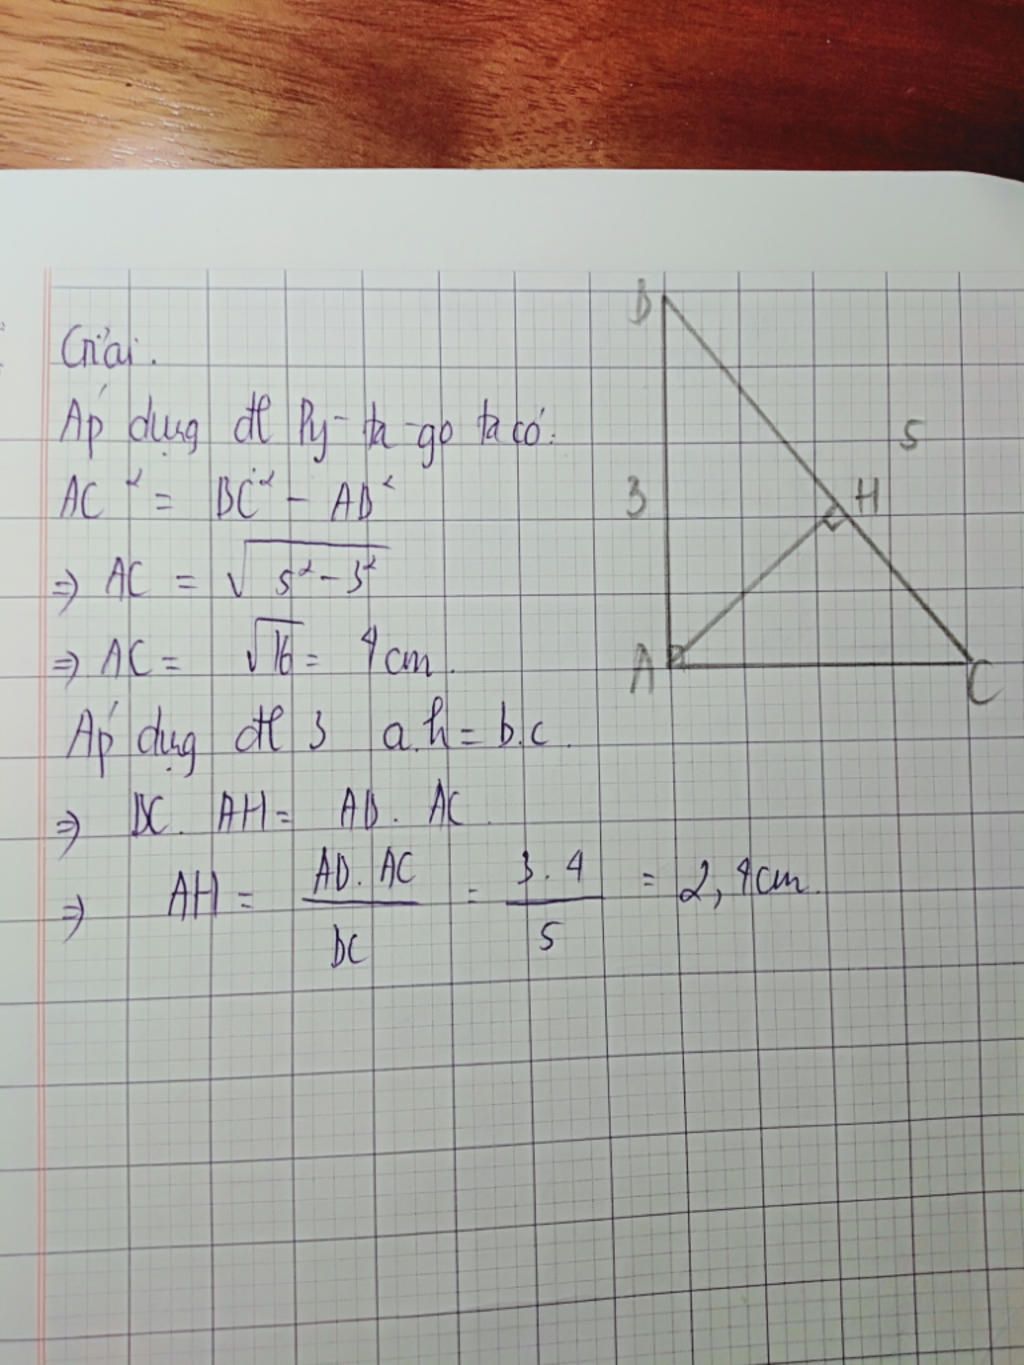 Giải.
Áp dụng đl Py-ta-go ta có:
AC² = BC² - AB²
=> AC = √5²-3²
=> AC = √16 = 4cm.
Áp dụng đl 3 a.h = b.c.
=> BC. AH = AB. AC.
=> AH = AB.AC/BC = 3.4/5 = 2,4cm.
B
5
3
H
A
C